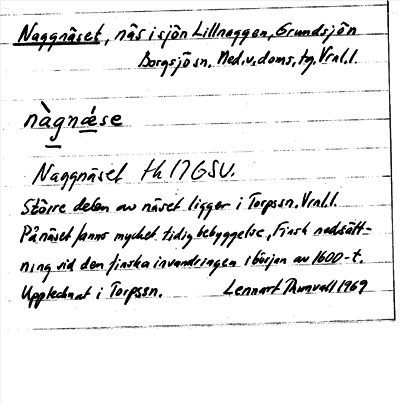 Naggnäset, näs i sjön Lillnaggen, Grundsjön
Borgsjö sn. Med.v.doms.tg. Vrnl.l.
nàgnǽse
Naggnäset th 17GSU.
Större delen av näset ligger i Torpssn. Vrnl.l.
På näset fanns mycket tidig bebyggelse, Finsk nedsätt-
ning vid den finska invandringen i början av 1600-t.
Upptecknat i Torpssn. Lennart Thunvall 1969